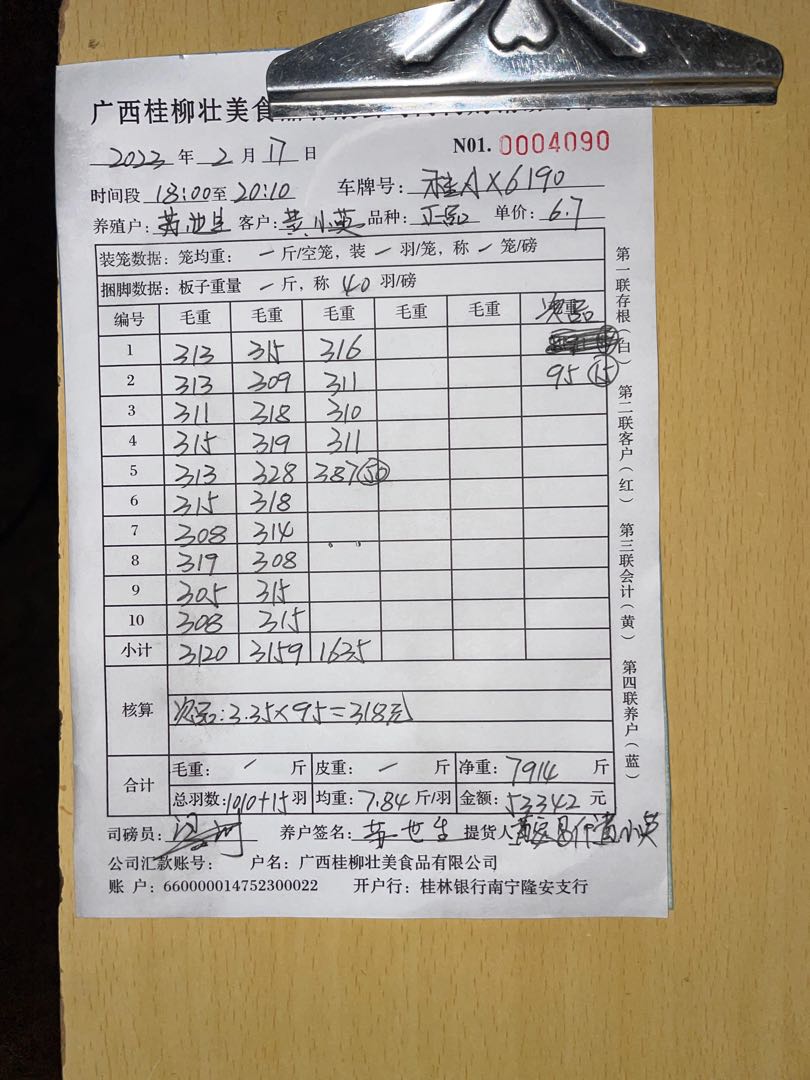 广西桂柳壮美食
2023 年 2 月 17 日 N01. 0004090
时间段 18:00 至 20:10 车牌号: 桂AX6190
养殖户: 客户: 黄小英 品种: 正品 单价: 6.7
装笼数据: 笼均重: 一 斤/空笼, 装 一 羽/笼, 称 一 笼/磅
捆脚数据: 板子重量 一 斤, 称 40 羽/磅
编号 毛重 毛重 毛重 毛重 毛重 次品
1 313 315 316
2 313 309 311 95 15
3 311 318 310
4 315 319 311
5 313 328 387 50
6 315 318
7 308 314
8 319 308
9 305 315
10 308 315
小计 3120 3159 1635
核算 次品:3.35×95=318元
合计 毛重: 一 斤 皮重: 一 斤 净重: 7914 斤
总羽数: 1010+15 羽 均重: 7.84 斤/羽 金额: 53342 元
司磅员: 养户签名: 提货人
公司汇款账号: 户名: 广西桂柳壮美食品有限公司
账 户: 660000014752300022 开户行: 桂林银行南宁隆安支行
第一联存根(白) 第二联客户(红) 第三联会计(黄) 第四联养户(蓝)